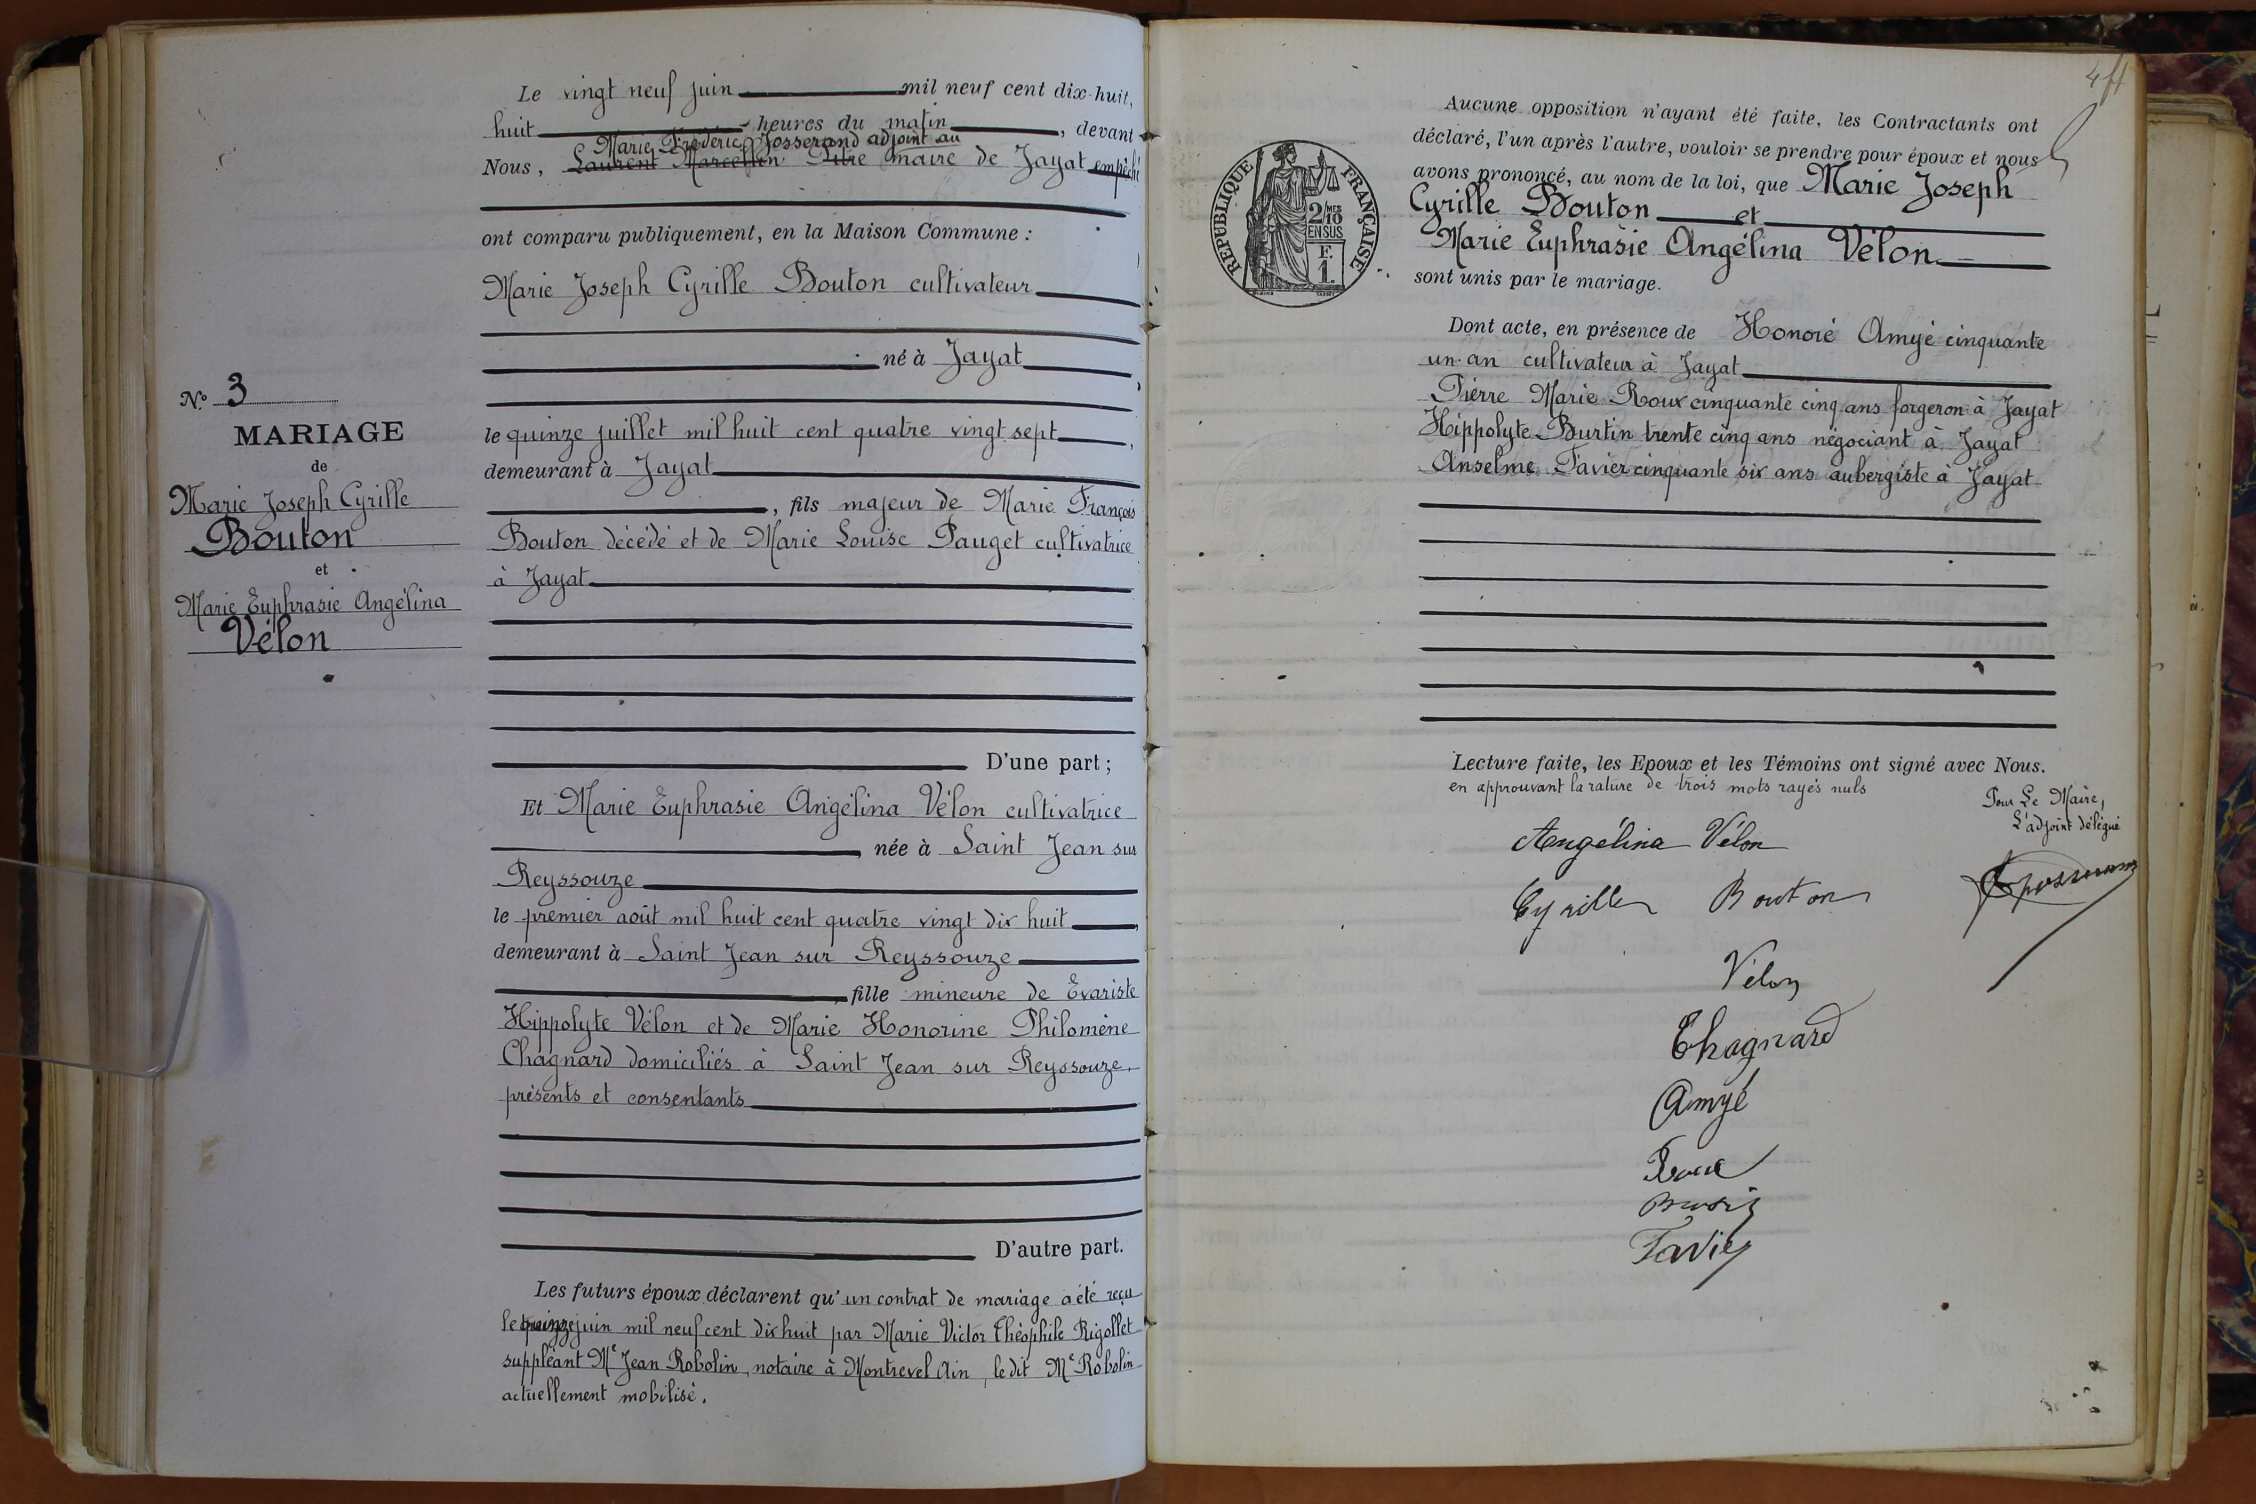 Le vingt neuf juin mil neuf cent dix-huit,
huit heures du matin, devant
Marie Frédéric Josserand adjoint au
Nous, Laurent Marcellin Pitre maire de Jayat empêché
ont comparu publiquement, en la Maison Commune :
Marie Joseph Cyrille Bouton cultivateur
né à Jayat
le quinze juillet mil huit cent quatre vingt sept,
demeurant à Jayat
, fils majeur de Marie François
Bouton décédé et de Marie Louise Pauget cultivatrice
à Jayat
D'une part ;
Et Marie Euphrasie Angélina Vélon cultivatrice
née à Saint Jean sur
Reyssouze
le premier août mil huit cent quatre vingt dix huit,
demeurant à Saint Jean sur Reyssouze
, fille mineure de Evariste
Hippolyte Vélon et de Marie Honorine Philomène
Chagnard domiciliés à Saint Jean sur Reyssouze,
présents et consentants
D'autre part.
Les futurs époux déclarent qu'un contrat de mariage a été reçu
le quinze juin mil neuf cent dix huit par Marie Victor Théophile Rigollet
suppléant Me Jean Robolin, notaire à Montrevel Ain, le dit Me Robolin
actuellement mobilisé.
No. 3
MARIAGE
de
Marie Joseph Cyrille
Bouton
et
Marie Euphrasie Angélina
Vélon
Aucune opposition n'ayant été faite, les Contractants ont
déclaré, l'un après l'autre, vouloir se prendre pour époux et nous
avons prononcé, au nom de la loi, que Marie Joseph
Cyrille Bouton et
Marie Euphrasie Angélina Vélon
sont unis par le mariage.
RÉPUBLIQUE FRANÇAISE
2/MES
10
EN SUS
F.
1.
Dont acte, en présence de Honoré Amyé cinquante
un an cultivateur à Jayat
Pierre Marie Roux cinquante cinq ans forgeron à Jayat
Hippolyte Burtin trente cinq ans négociant à Jayat
Anselme Favier cinquante six ans aubergiste à Jayat
Lecture faite, les Epoux et les Témoins ont signé avec Nous.
en approuvant la rature de trois mots rayés nuls
Pour Le Maire,
L'adjoint délégué
Angélina Vélon
Cyrille Bouton
Vélon
Chagnard
Amyé
Roux
Favier